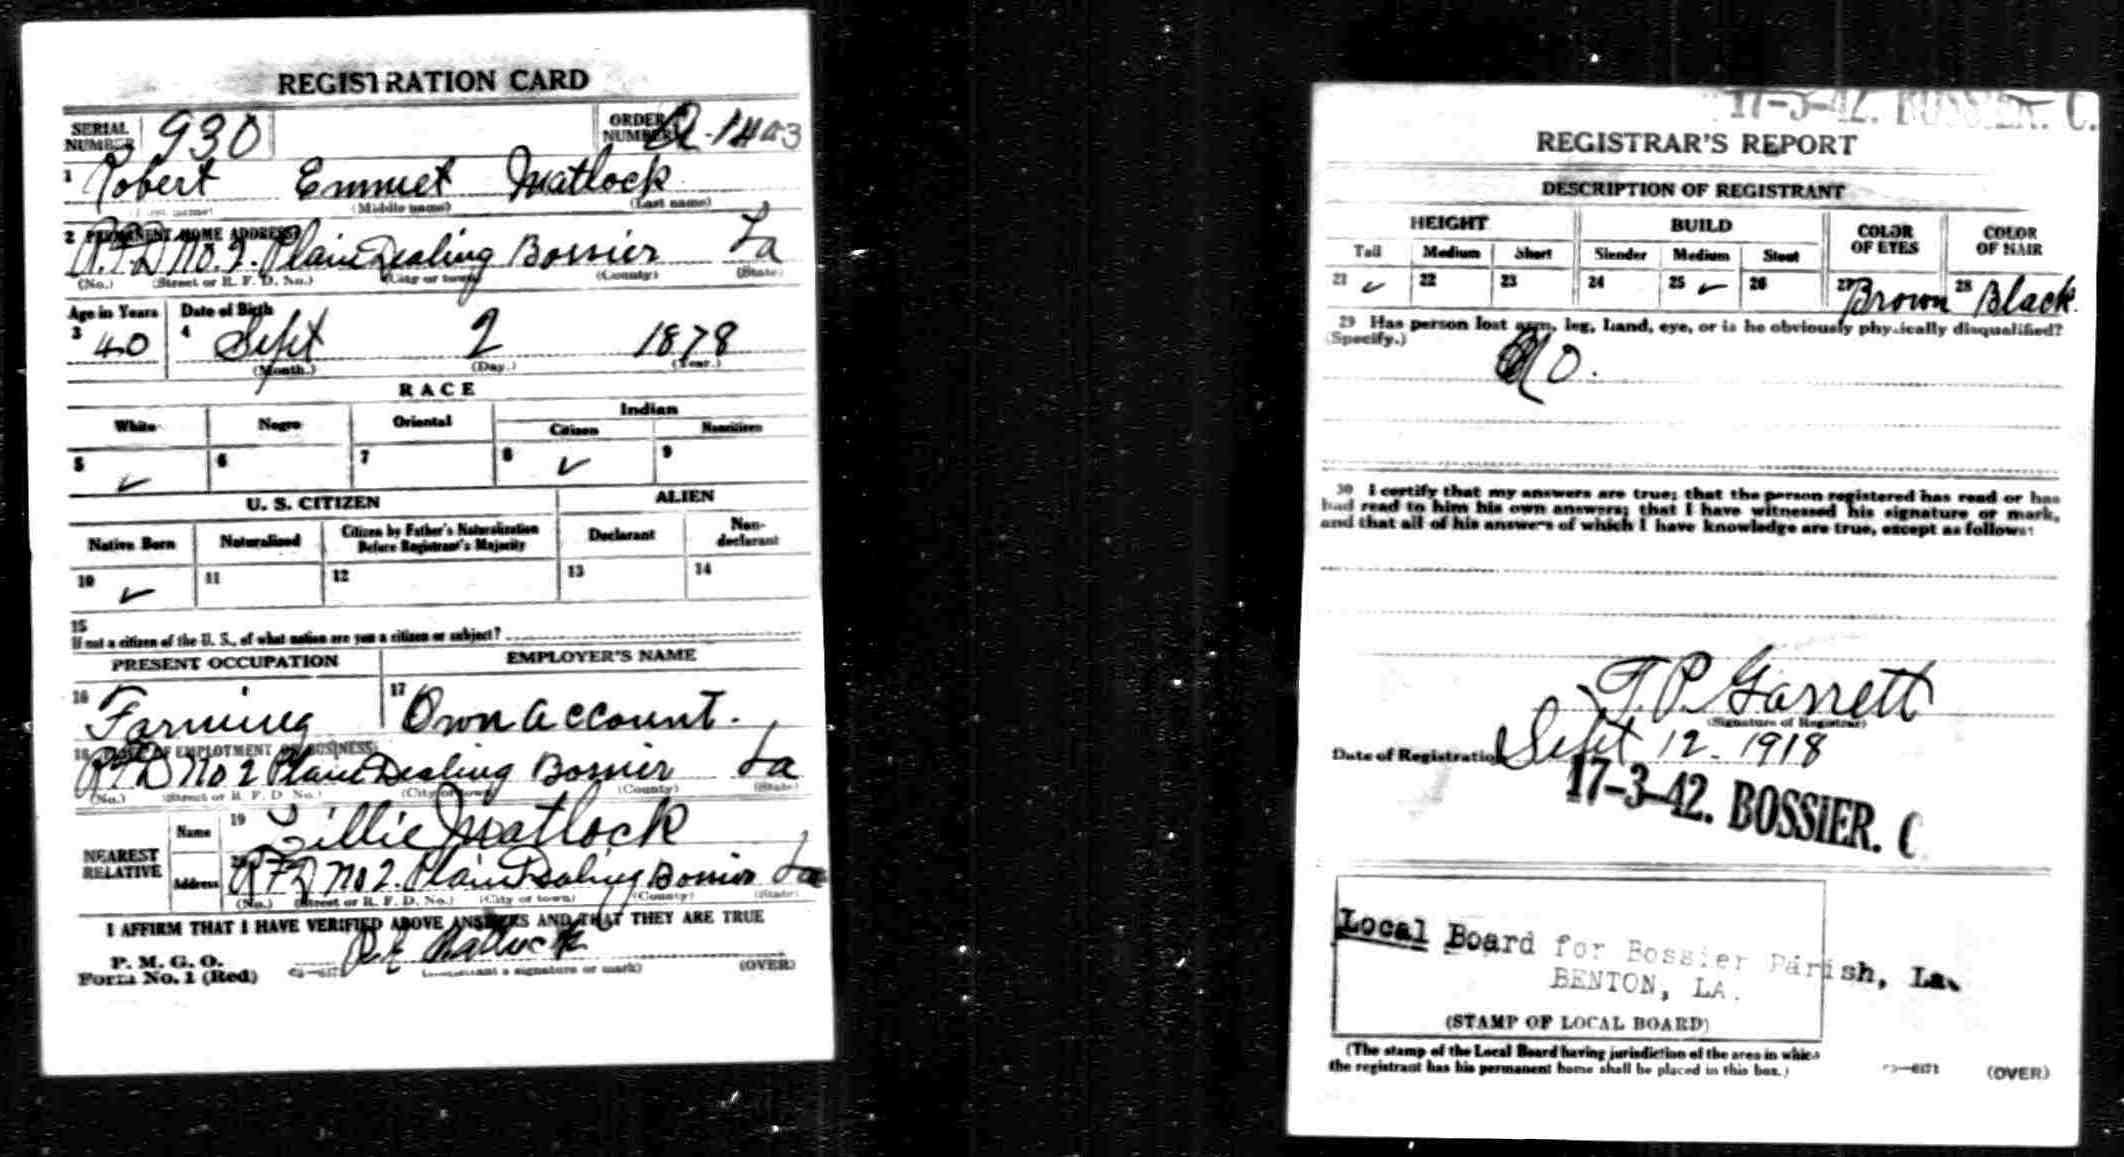 REGISTRATION CARD
SERIAL NUMBER 930 ORDER NUMBER A-1403
1 Robert Emmet Matlock
(Middle name) (Last name)
2 PERMANENT HOME ADDRESS
R.F.D No. 2. Plain Dealing Bossier La
(No.) (Street or R. F. D. No.) (City or town) (County) (State)
Age in Years Date of Birth
3 40 4 Sept 2 1878
(Month.) (Day.) (Year.)
RACE
White Negro Oriental Indian
Citizen Noncitizen
5 ✓ 6 7 8 ✓ 9
U. S. CITIZEN ALIEN
Native Born Naturalized Citizen by Father's Naturalization Before Registrant's Majority Declarant Non-declarant
10 ✓ 11 12 13 14
15
If not a citizen of the U. S., of what nation are you a citizen or subject?
PRESENT OCCUPATION EMPLOYER'S NAME
16 Farming 17 Own account.
18 PLACE OF EMPLOYMENT OR BUSINESS:
R.F.D No 2 Plain Dealing Bossier La
(No.) (Street or R. F. D. No.) (City or town) (County) (State)
NEAREST RELATIVE
Name 19 Lillie Matlock
Address 20 R F D No 2. Plain Dealing Bossier La
(No.) (Street or R. F. D. No.) (City or town) (County) (State)
I AFFIRM THAT I HAVE VERIFIED ABOVE ANSWERS AND THAT THEY ARE TRUE
P. M. G. O.
Form No. 1 (Red) R E Matlock
(Registrant's signature or mark) (OVER)
17-3-42. BOSSIER. C.
REGISTRAR'S REPORT
DESCRIPTION OF REGISTRANT
HEIGHT BUILD COLOR OF EYES COLOR OF HAIR
Tall Medium Short Slender Medium Stout
21 ✓ 22 23 24 25 ✓ 26 27 Brown 28 Black.
29 Has person lost arm, leg, hand, eye, or is he obviously physically disqualified?
(Specify.)
No.
30 I certify that my answers are true; that the person registered has read or has
had read to him his own answers; that I have witnessed his signature or mark,
and that all of his answers of which I have knowledge are true, except as follows:
T. P. Garrett
(Signature of Registrar)
Date of Registration Sept 12 - 1918
17-3-42. BOSSIER. C
Local Board for Bossier Parish, La.
BENTON, LA.
(STAMP OF LOCAL BOARD)
(The stamp of the Local Board having jurisdiction of the area in which
the registrant has his permanent home shall be placed in this box.)
(OVER)